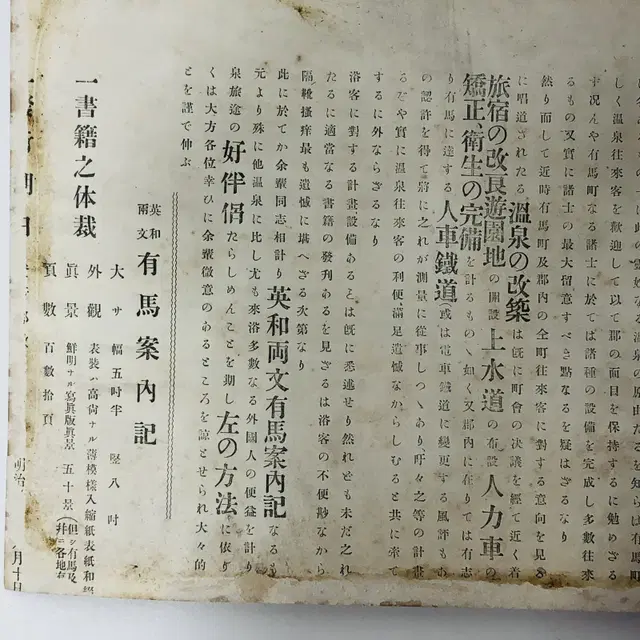 の原由たるを知らは有馬町
しく溫泉往來客を歡迎して以て郡の面目を保持するに勉めざる
す况んや有馬町なる諸士に於ては諸種の設備を完成し多數往來
るもの又實に諸士の最大留意すべき點なるを疑はざるなり
然り而して近時有馬町及郡內の全町往來客に對する意向を見る
に唱道されたる溫泉の改築は旣に町會の決議を經て近く着
旅宿の改良遊園地の開設上水道の布設人力車の
矯正、衛生の完備を計るものゝ如く又郡內に在りては有志
り有馬に達する人車鐵道或は電車鐵道に變更する風評もあ
の認許を得て將に之れが測量に從事しつゝあり、吁々之等の計畫
るぞや實に溫泉往來客の利便滿足遺憾なからしむると共に
するに外ならざるなり
浴客に對する計畫設備あることは旣に悉述せり然れども未だ之れ
たるに適當なる書籍の發刋あるを見ざるは浴客の不便尠なから
隔靴搔痒最も遺憾に堪へざる次第なり
此に於てか余輩同志相計り英和両文有馬案內記なるも
元より殊に他溫泉に比し尤も來浴多數なる外國人の便益を計り
泉旅途の好伴侶たらしめんことを期し左の方法に依り
くは大方各位幸ひに余輩微意のあるところを諒とせられ大々的
とを謹で伸ぶ
英和兩文有馬案內記
大サ 幅五吋半 竪八吋
一書籍之体裁 外觀 表裝ハ高尙ナル薄模樣入縮紙表紙和
眞景 鮮明ナル寫眞版眞景五十景(但シ有馬及
頁數 百數拾頁
明治
月十日